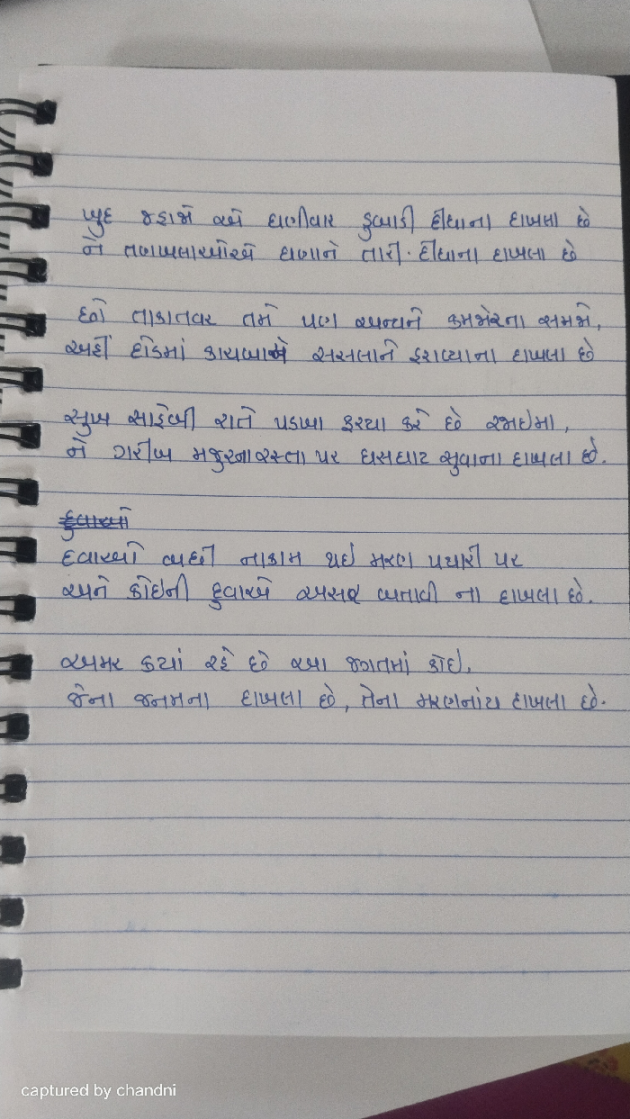 ખુદ જહાજે એ ઘણીવાર ડુબાડી દીધાના દાખલા છે
ને તણખલાઓએ ઘણાને તારી. દીધાના દાખલા છે
છો તાકાતવર તમે પણ અન્યને કમજોરના સમજો,
અહીં દોડમાં કાચબાએ સસલાને હરાવ્યાના દાખલા છે
સુખ સાહેબી રાતે પડખા ફરયા કરે છે રજાઇમા,
ને ગરીબ મજુરના રસ્તા પર ઘસઘાટ સુવાના દાખલા છે.
દવાઓ બધી નાકામ થઇ મરણ પથારી પર
અને કોઇની દુવાએ અસર બતાવી ના દાખલા છે.
અમર કયાં રહે છે આ જગતમાં કોઇ,
જેના જનમના દાખલા છે, તેના મરણનાંય દાખલા છે.
captured by chandni